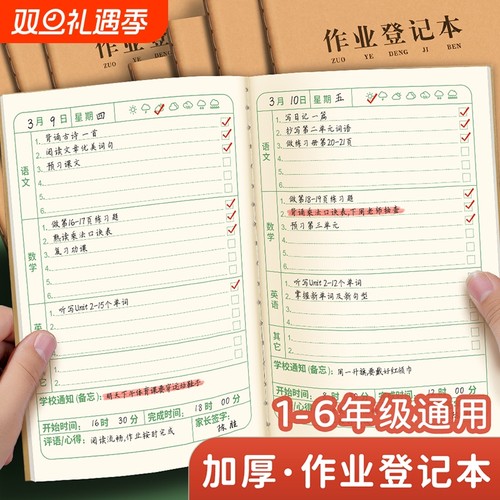 双旦礼遇季
作业登记本
ZUO YE DENG JI BEN
3月9日 星期四
语文
1. 背诵古诗一首
2. 阅读文章优美词句
3. 预习课文
4.
5.
6.
数学
1. 做第16-17页练习题
2. 熟读乘法口诀表
3. 复习功课
4.
5.
6.
英语
1. 听写Unit 2-15个单词
2.
3.
学校通知(备忘): 明天下午体育课要穿运动鞋子
开始时间: 16时30分 完成时间: 18时00分
评语/心得: 阅读流畅,作业按时完成 家长签字: 陈胜
3月10日 星期五
语文
1. 写日记一篇
2. 抄写第二单元词语
3. 做练习册第20-21页
4.
5.
6.
数学
1. 做第18-19页练习题
2. 背诵乘法口诀表,下周老师检查
3. 预习第三单元
4.
5.
6.
英语
1. 听写Unit 2-12个单词
2. 掌握新单词及新句型
3.
其它
1.
2.
学校通知(备忘): 周一升旗要戴好红领巾
1-6年级通用
加厚·作业登记本